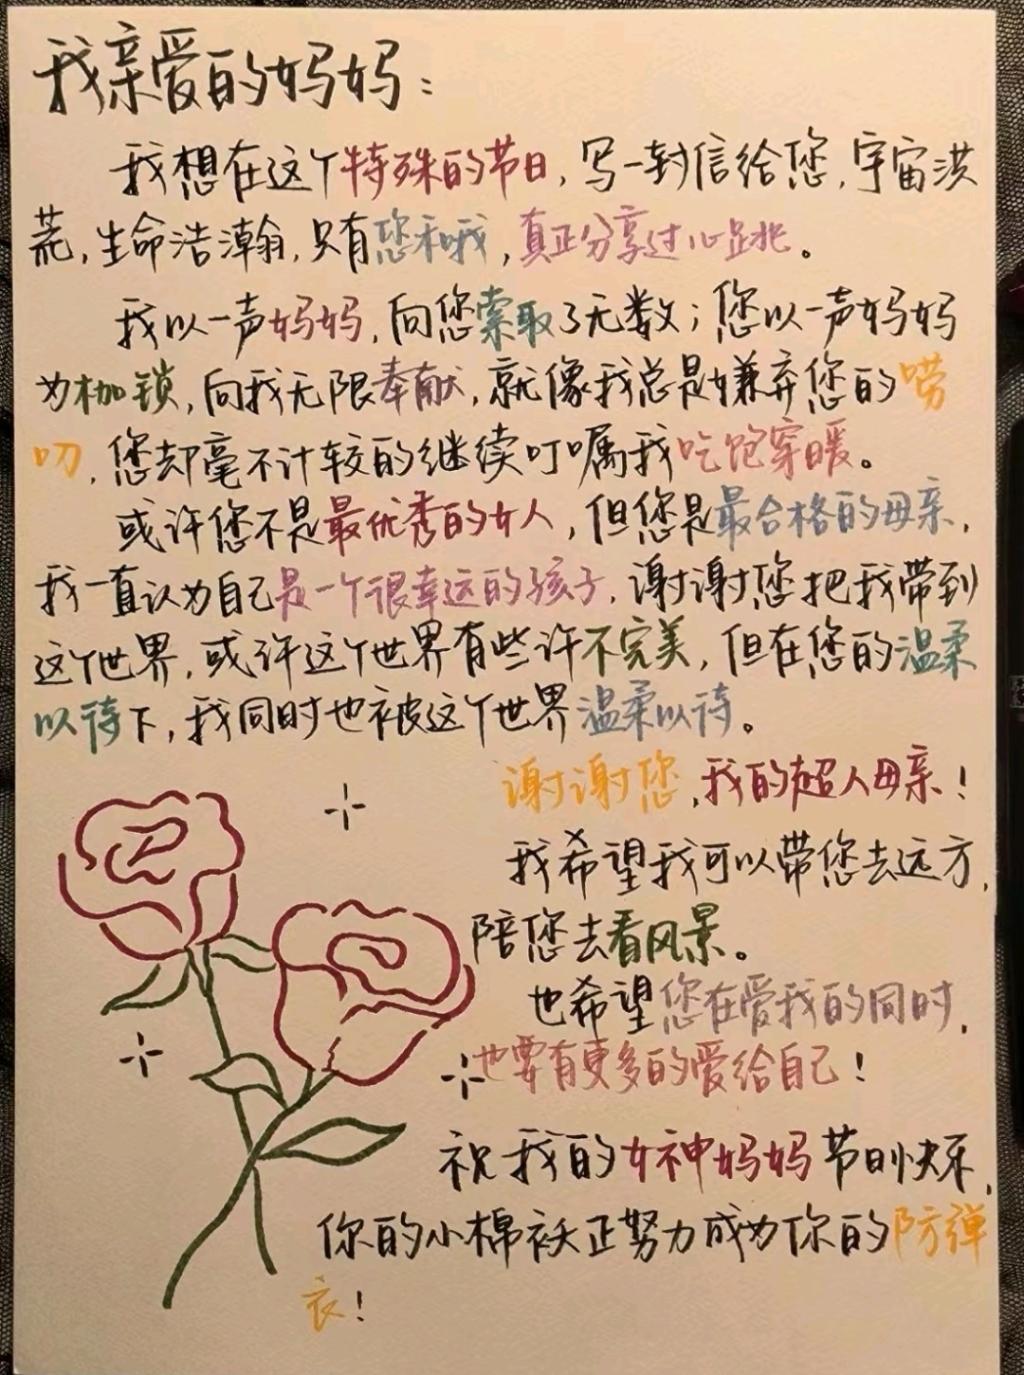 我亲爱的妈妈：
我想在这个特殊的节日，写一封信给您，宇宙洪
荒，生命浩瀚，只有您和我，真正分享过心跳。
我以一声妈妈，向您索取了无数；您以一声妈妈
为枷锁，向我无限奉献，就像我总是嫌弃您的唠
叨，您却毫不计较的继续叮嘱我吃饱穿暖。
或许您不是最优秀的女人，但您是最合格的母亲，
我一直认为自己是一个很幸运的孩子，谢谢您把我带到
这个世界，或许这个世界有些许不完美，但在您的温柔
以待下，我同时也被这个世界温柔以待。
谢谢您，我的超人母亲！
我希望我可以带您去远方，
陪您去看风景。
也希望您在爱我的同时，
也要有更多的爱给自己！
祝我的女神妈妈节日快乐，
你的小棉袄正努力成为你的防弹
衣！